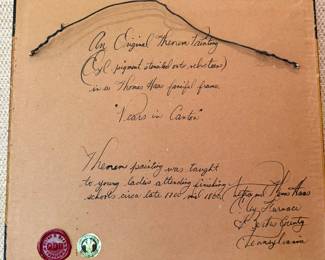 An Original Theorem Painting
(Oil pigment stenciled onto velveteen)
in a Thomas Haas fanciful frame
"Pears in Canton"
Theorem painting was taught
to young ladies attending finishing
schools circa late 1800 mid 1800.
Thomas Haas
Clay Furnace
Pennsylvania